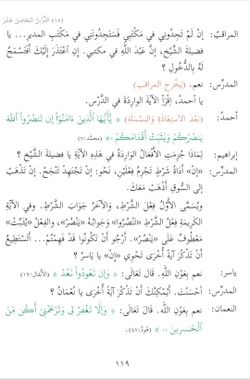 (١٥) الدَّرْسُ الخَامِسَ عَشَرَ
المراقِبُ: إِنْ لَمْ تَجِدُونِي فِي مَكْتَبِي فَسَتَجِدُونَنِي فِي مَكْتَبِ المديرِ... يا
فضيلةَ الشَّيخِ، إِنَّ عَبْدَ اللَّهِ في مكتبي. إِنِ اعْتَذَرَ إِلَيْكَ أَفَتَسْمَحُ
لَهُ بِالدُّخُولِ؟
المدرّس: نعم. (يخرج المراقب)
يا أحمدُ، اِقْرَأِ الآيَةَ الوَارِدَةَ في الدَّرْسِ.
أحمدُ: (بَعْدَ الاِسْتِعَاذَةِ وَالبَسْمَلَةِ) ﴿ يَٰٓأَيُّهَا ٱلَّذِينَ ءَامَنُوٓا۟ إِن تَنصُرُوا۟ ٱللَّهَ
يَنصُرْكُمْ وَيُثَبِّتْ أَقْدَامَكُمْ ﴾ (محمّد:٧)
إبراهيم: لِمَاذَا جُزِمَتِ الأَفْعَالُ الوَارِدَةُ فِي هَذِهِ الآيَةِ يَا فَضِيلَةَ الشَّيْخِ؟
المدرّس: «إِنْ» أَدَاةُ شَرْطٍ تَجْزِمُ فِعْلَيْنِ، نَحْوُ: إِنْ تَجْتَهِدْ تَنْجَحْ. إِنْ تَذْهَبْ
إِلى السُّوقِ أَذْهَبْ مَعَكَ.
وَيُسَمَّى الأَوَّلُ فِعْلَ الشَّرْطِ، وَالآخَرُ جَوَابَ الشَّرْطِ. وفي الآيَةِ
الكريمةِ فِعْلُ الشَّرْطِ «تَنْصُرُوا» وَجوابُهُ «يَنْصُرْ»، وَالفِعْلُ «يُثَبِّتْ»
مَعْطُوفٌ عَلَى «يَنْصُرْ». أَرْجُو أَنْ تَكُونُوا قَدْ فَهِمْتُمْ... أَتَسْتَطِيعُ
أَنْ تَذْكُرَ آيَةً أُخْرَى تَحْوِي «إِنْ» يا يَاسِرُ؟
ياسر: نعم بِعَوْنِ اللَّهِ. قال تَعَالَى: ﴿ وَإِن تَعُودُوا۟ نَعُدْ ﴾ (الأنفال:١٩)
المدرّس: أَحْسَنْتَ. أَيُمْكِنُكَ أَنْ تَذْكُرَ آيَةً أُخْرَى يَا نُعْمَانُ؟
النعمان: نعم بِعَوْنِ اللَّهِ. قَالَ تَعَالَى: ﴿ وَإِلَّا تَغْفِرْ لِى وَتَرْحَمْنِىٓ أَكُن مِّنَ
ٱلْخَٰسِرِينَ ﴾ (هود:٤٧)
١١٩